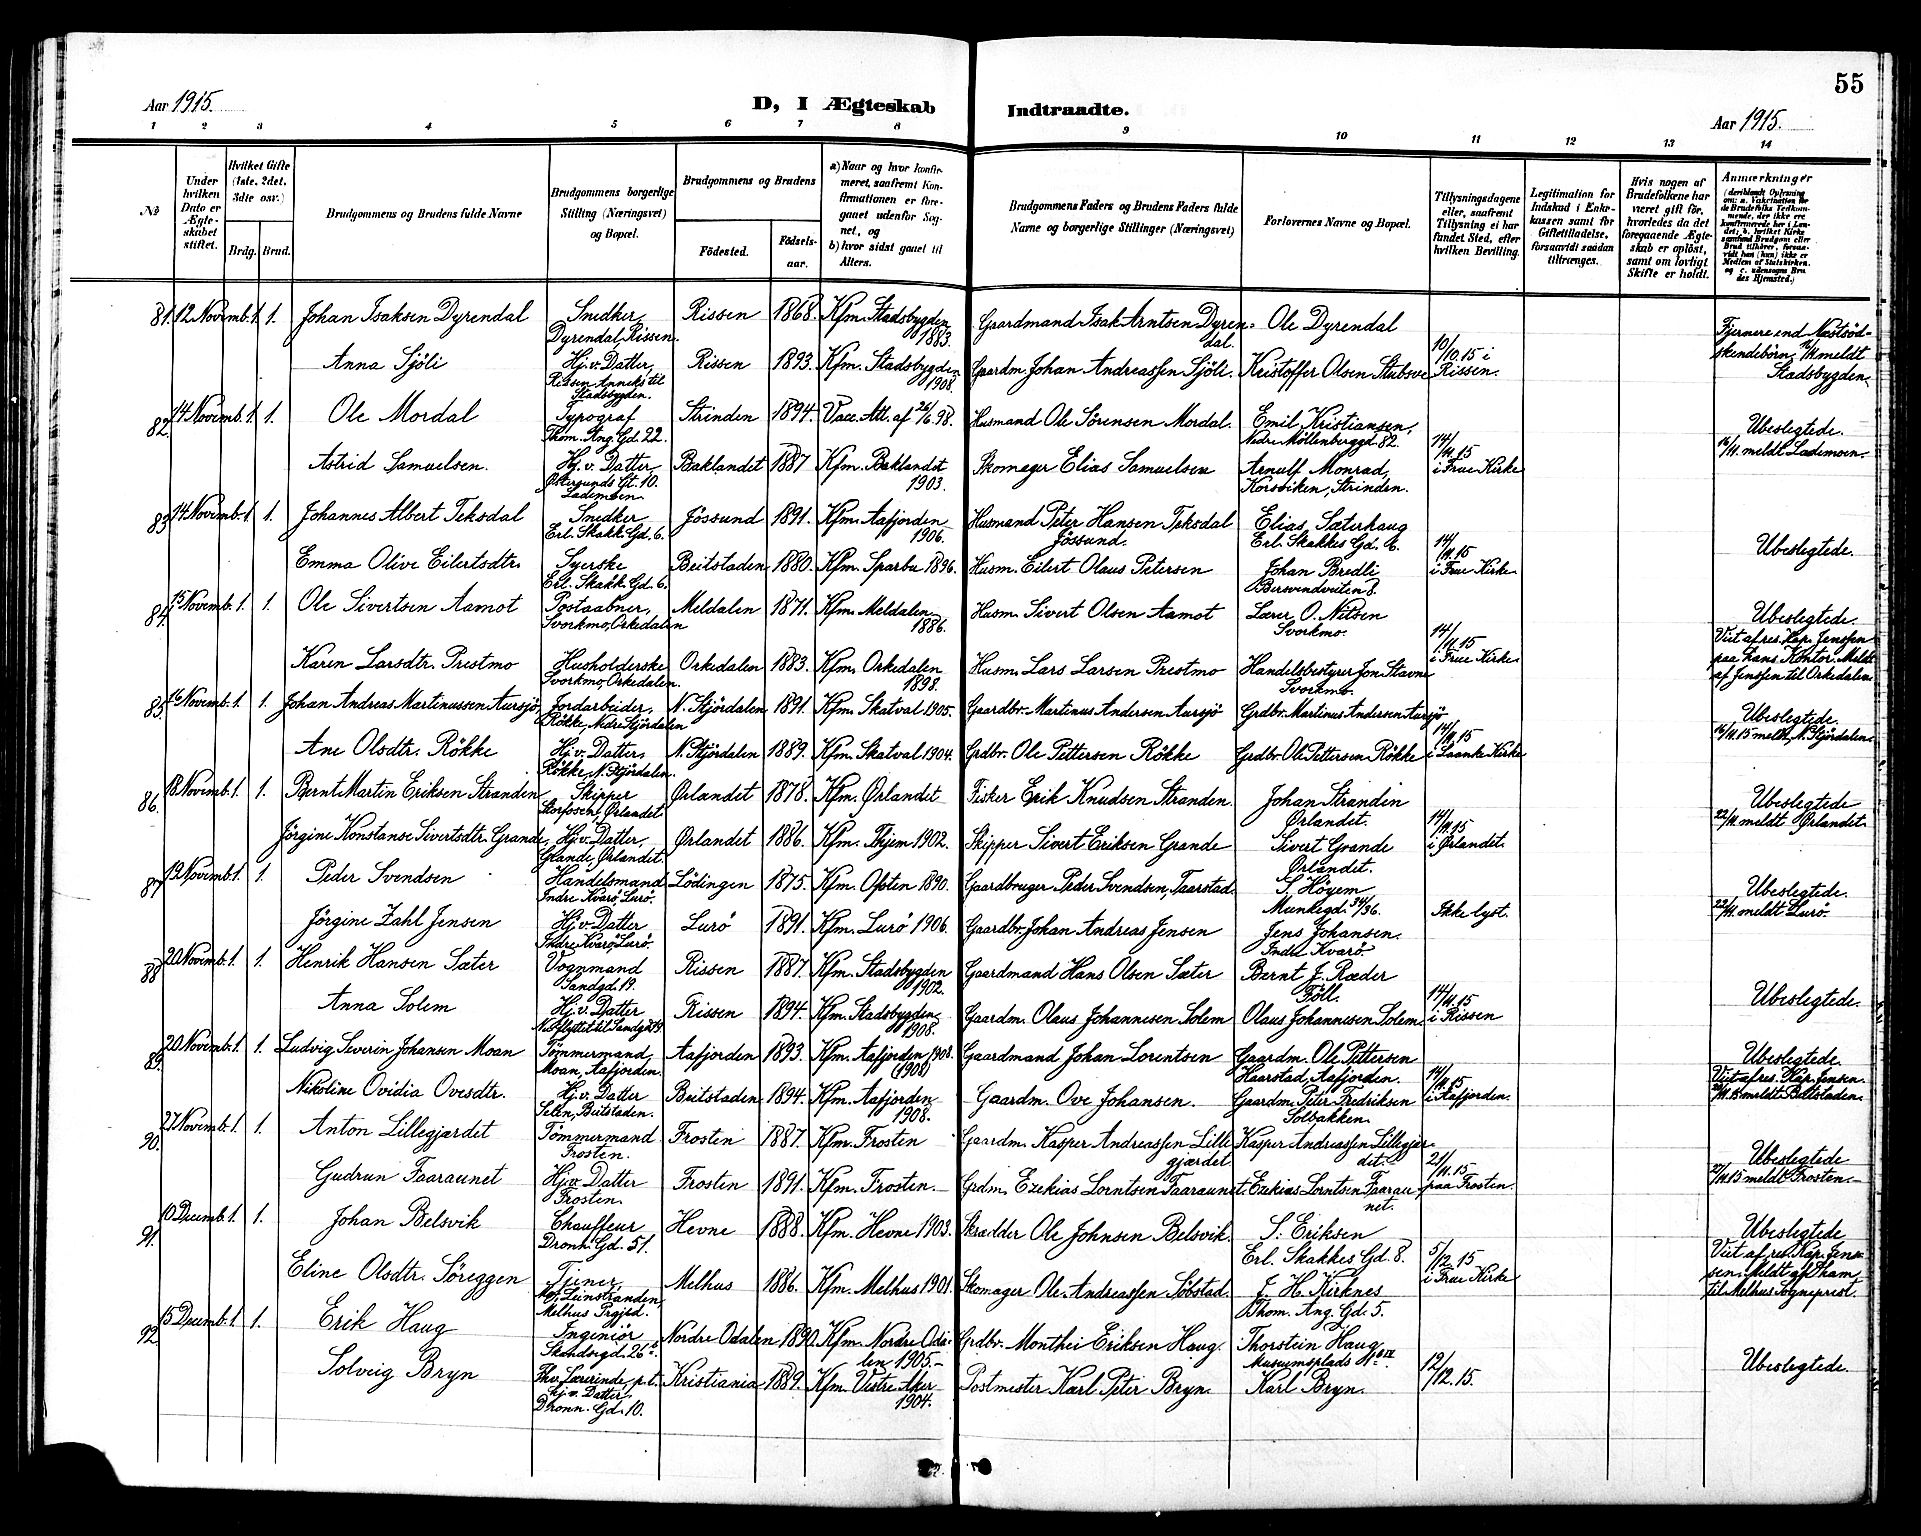 55
Aar 1915.
D, I Ægteskab
Indtraadte.
Aar 1915.
1 2 3 4 5 6 7 8 9 10 11 12 13 14
No
Under hvilken Dato er Ægteskabet stiftet.
Hvilket Gifte (1ste, 2det, 3die osv.)
Brdg. Brud.
Brudgommens og Brudens fulde Navne
Brudgommens borgerlige Stilling (Næringsvei) og Bopæl.
Brudgommens og Brudens
Födested.
Födselsaar.
a) Naar og hvor konfirmeret, saafremt Konfirmationen er foregaaet udenfor Sognet, og
b) hvor sidst gaaet til Alters.
Brudgommens Faders og Brudens Faders fulde Navne og borgerlige Stillinger (Næringsvei)
Forlovernes Navne og Bopæl.
Tillysningsdagene eller, saafremt Tillysning ei har fundet Sted, efter hvilken Bevilling.
Legitimation for Indskud i Enkekassen samt for Giftetilladelse, forsaavidt saadan tiltrænges.
Hvis nogen af Brudefolkene har været gift för, hvorledes da det foregaaende Ægteskab er oplöst, samt om lovligt Skifte er holdt.
Anmærkninger
81. 12 Novemb. 1. 1. Johan Isaksen Dyrendal Snedker, Dyrendal, Rissen. Rissen 1868. Kfm. Stadsbygden 1883. Gaardmand Isak Arntsen Dyrendal. Ole Dyrendal
Anna Sjöli Hj. v. Datter, Rissen Anneks til Stadsbygden. Rissen 1893. Kfm. Stadsbygden 1908. Gaardm. Johan Andreassen Sjöli. Kristoffer Olsen Stubsve 10/10.15 i Rissen. Fjernere end Næstsödskendebörn, 12/11 meldt Stadsbygden.
82. 14 Novemb. 1. 1. Ole Mordal Typograf Thom. Ang. Gd. 22. Strinden 1894. Vacc. Att. af 26/6 98. Husmand Ole Sörensen Mordal. Emil Kristiansen, Nedre Möllenberggd. 82.
Astrid Samuelsen. Hj. v. Datter, Östersunds Gt. 10. Lademoen. Baklandet 1887 Kfm. Baklandet 1903. Skomager Elias Samuelsen Arnulf Monrad, Korsviken, Strinden. 14/11.15 i Frue Kirke Ubeslegtede. 16/11. meldt Lademoen.
83. 14 Novemb. 1. 1. Johannes Albert Teksdal Snedker Erl. Skakk. Gd. 6. Jössund 1891. Kfm. Aafjorden 1906. Husmand Peter Hansen Teksdal Jössund. Elias Sæterhaug Erl. Skakkes Gd. 6.
Emma Olive Eilertsdtr. Syerske Erl. Skakk. Gd. 6. Beitstaden 1880. Kfm. Sparbu 1896. Husm. Eilert Olaus Petersen Johan Bredli Bersvendveiten 8. 14/11.15 i Frue Kirke Ubeslegtede.
84. 15 Novemb. 1. 1. Ole Sivertsen Aamot Postaabner, Svorkmo, Orkedalen Meldalen 1871. Kfm. Meldalen 1886. Husm. Sivert Olsen Aamot Lærer O. Nilsen Svorkmo.
Karen Larsdtr. Prestmo Husholderske Svorkmo, Orkedalen. Orkedalen 1883. Kfm. Orkedalen 1898. Husm. Lars Larsen Prestmo Handelsbestyrer Jon Stavne Svorkmo. 14/11.15 i Frue Kirke Ubeslegtede. Viet af res. Kap. Jenssen paa hans Kontor. Meldt af Jenssen til Orkedalen
85. 16 Novemb. 1 1. Johan Andreas Martinussen Aursjö, Jordarbeider, Rökke, Nedre Stjördalen N. Stjördalen 1891. Kfm. Skatval 1905. Gaardbr. Martinus Andersen Aursjö Grdbr. Martinus Andersen Aursjö
Ane Olsdtr. Rökke Hj. v. Datter, Rökke, N. Stjördalen. N. Stjördalen 1889. Kfm. Skatval 1904. Grdbr. Ole Pettersen Rökke Grdbr. Ole Pettersen Rökke 14/11.15 i Laanke Kirke Ubeslegtede. 16/11.15 meldt N. Stjördalen.
86. 18. Novemb. 1 1. Bernt Martin Eriksen Stranden, Skipper Storfosen, Ørlandet Ørlandet 1878. Kfm. Ørlandet Fisker Erik Knudsen Stranden. Johan Strandin Ørlandet.
Jörgine Konstanse Sivertsdtr. Grande, Hj. v. Datter, Grande, Ørlandet. Ørlandet 1886. Kfm. Hjem 1902. Skipper Sivert Eriksen Grande Sivert Grande Ørlandet. 14/11.15 i Ørlandet. Ubeslegtede 22/11. meldt Ørlandet.
87. 19. Novemb. 1 1. Peder Svendsen Handelsmand Indre Kvarö, Lurö. Lödingen 1875. Kfm. Ofoten 1890. Gaardbruger Peder Svendsen, Taarstad. S. Höyem Munkegd. 34/36.
Jörgine Zahl Jensen Hj. v. Datter Indre Kvarö, Lurö. Lurö 1891. Kfm. Lurö 1906. Gaardbr. Johan Andreas Jensen Jens Johansen. Indre Kvarö. Ikke lyst. Ubeslegtede 22/11. meldt Lurö.
88. 20 Novemb. 1 1. Henrik Hansen Sæter Vognmand Sandgd. 19. Rissen 1887. Kfm. Stadsbygden 1902. Gaardmand Hans Olsen Sæter Bernt J. Ræder Föll.
Anna Solem Hj. v. Datter Rissen 1894. Kfm. Stadsbygden 1908. Gaardm. Olaus Johannesen Solem Olaus Johannesen Solem. 14/11.15 i Rissen Ubeslegtede.
89. 20 Novemb. 1 1. Ludvig Severin Johansen Moan Tömmermand, Moan, Aafjorden. Aafjorden 1893. Kfm. Aafjorden 1908. (1908) Gaardmand Johan Lorentsen Gaardm. Ole Pettersen Haarstad, Aafjorden.
Nikoline Ovidia Ovesdtr. Hj. v. Datter Selen, Beitstaden. Beitstaden 1894. Kfm. Aafjorden 1908. Gaardm. Ove Johansen. Gaardm. Peter Fredriksen Solbakken. 14/11.15 i Aafjorden. Ubeslegtede Viet af res. Kap. Jensen. 20/11.15 meldt Beitstaden.
90. 27 Novemb. 1 1. Anton Lillegjærdet Tömmermand Frosten. Frosten 1887. Kfm. Frosten Gaardm. Kasper Andreassen Lillegjærdet Kasper Andreassen Lillegjærdet.
Gudrun Faaraunet Hj. v. Datter Frosten. Frosten 1891. Kfm. Frosten. Grdm. Ezekias Lorntsen Faaraunet. Ezekias Lorntsen Faaraunet. 21/11.15 paa Frosten. Ubeslegtede 27/11.15 meldt Frosten.
91. 10 Decemb. 1. 1. Johan Belsvik Chauffeur Dronn. Gd. 51. Hevne 1888. Kfm. Hevne 1903. Skrædder Ole Johnsen Belsvik. S. Eriksen Erl. Skakkes Gd. 8.
Eline Olsdtr. Söreggen Tjener, Leinstranden, Melhus Prgjæld. Melhus 1886. Kfm. Melhus 1901. Skomager Ole Andreassen Söbstad. J. H. Kirknes Thom. Ang. Gd. 5. 5/12.15 i Frue Kirke Ubeslegtede Viet af res. Kap. Jenssen. Meldt af Dham til Melhus sogneprest.
92. 15 Decemb. 1 1. Erik Haug Ingeniör Skansegd. 26 b. Nordre Odalen 1890. Kfm. Nordre Odalen 1905. Grdbr. Monthei Eriksen Haug. Thorstein Haug Museumsplads
Solveig Bryn Fhv. Lærerinde, p.t. hj. v. Datter, Dronn. Gd. 10. Kristiania 1889. Kfm. Vestre Aker 1904. Postmester Karl Peter Bryn. Karl Bryn. 12/12.15. Ubeslegtede.